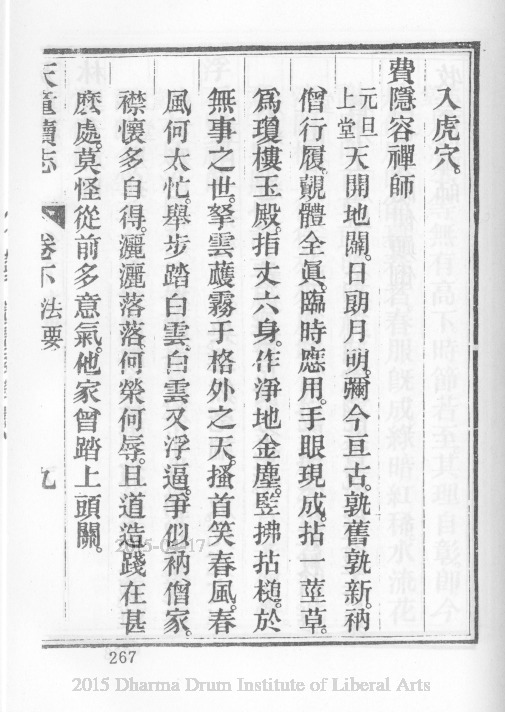 入虎穴。
費隱容禪師
元旦上堂天開地闢。日朗月明。彌今亙古。孰舊孰新。衲
僧行履。覿體全眞。臨時應用。手眼現成。拈莖草。
爲瓊樓玉殿。指丈六身。作淨地金塵。竪拂拈槌。於
無事之世。拏雲𢹂霧于格外之天。搔首笑春風。春
風何太忙。舉步踏白雲。白雲又浮逼。爭似衲僧家。
襟懷多自得。灑灑落落。何榮何辱。且道造踐在甚
麽處。莫怪從前多意氣。他家曾踏上頭關。
天童續志 卷下 法要 九
267
2015 Dharma Drum Institute of Liberal Arts